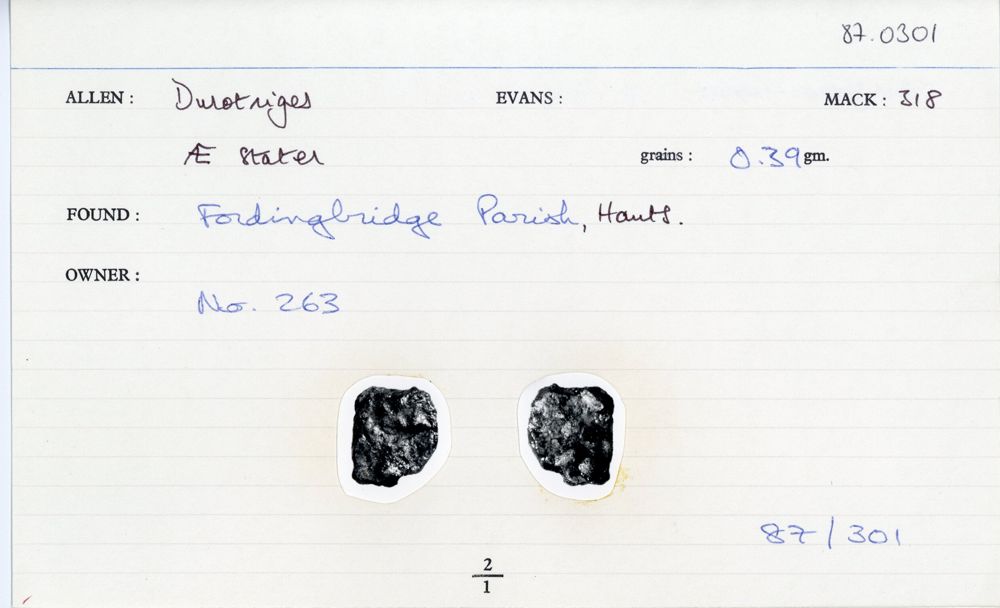 87.0301
ALLEN : Durotriges EVANS : MACK : 318
Æ Stater grains : 0.39 gm.
FOUND : Fordingbridge Parish, Hants.
OWNER :
No. 263
87/301
2
1